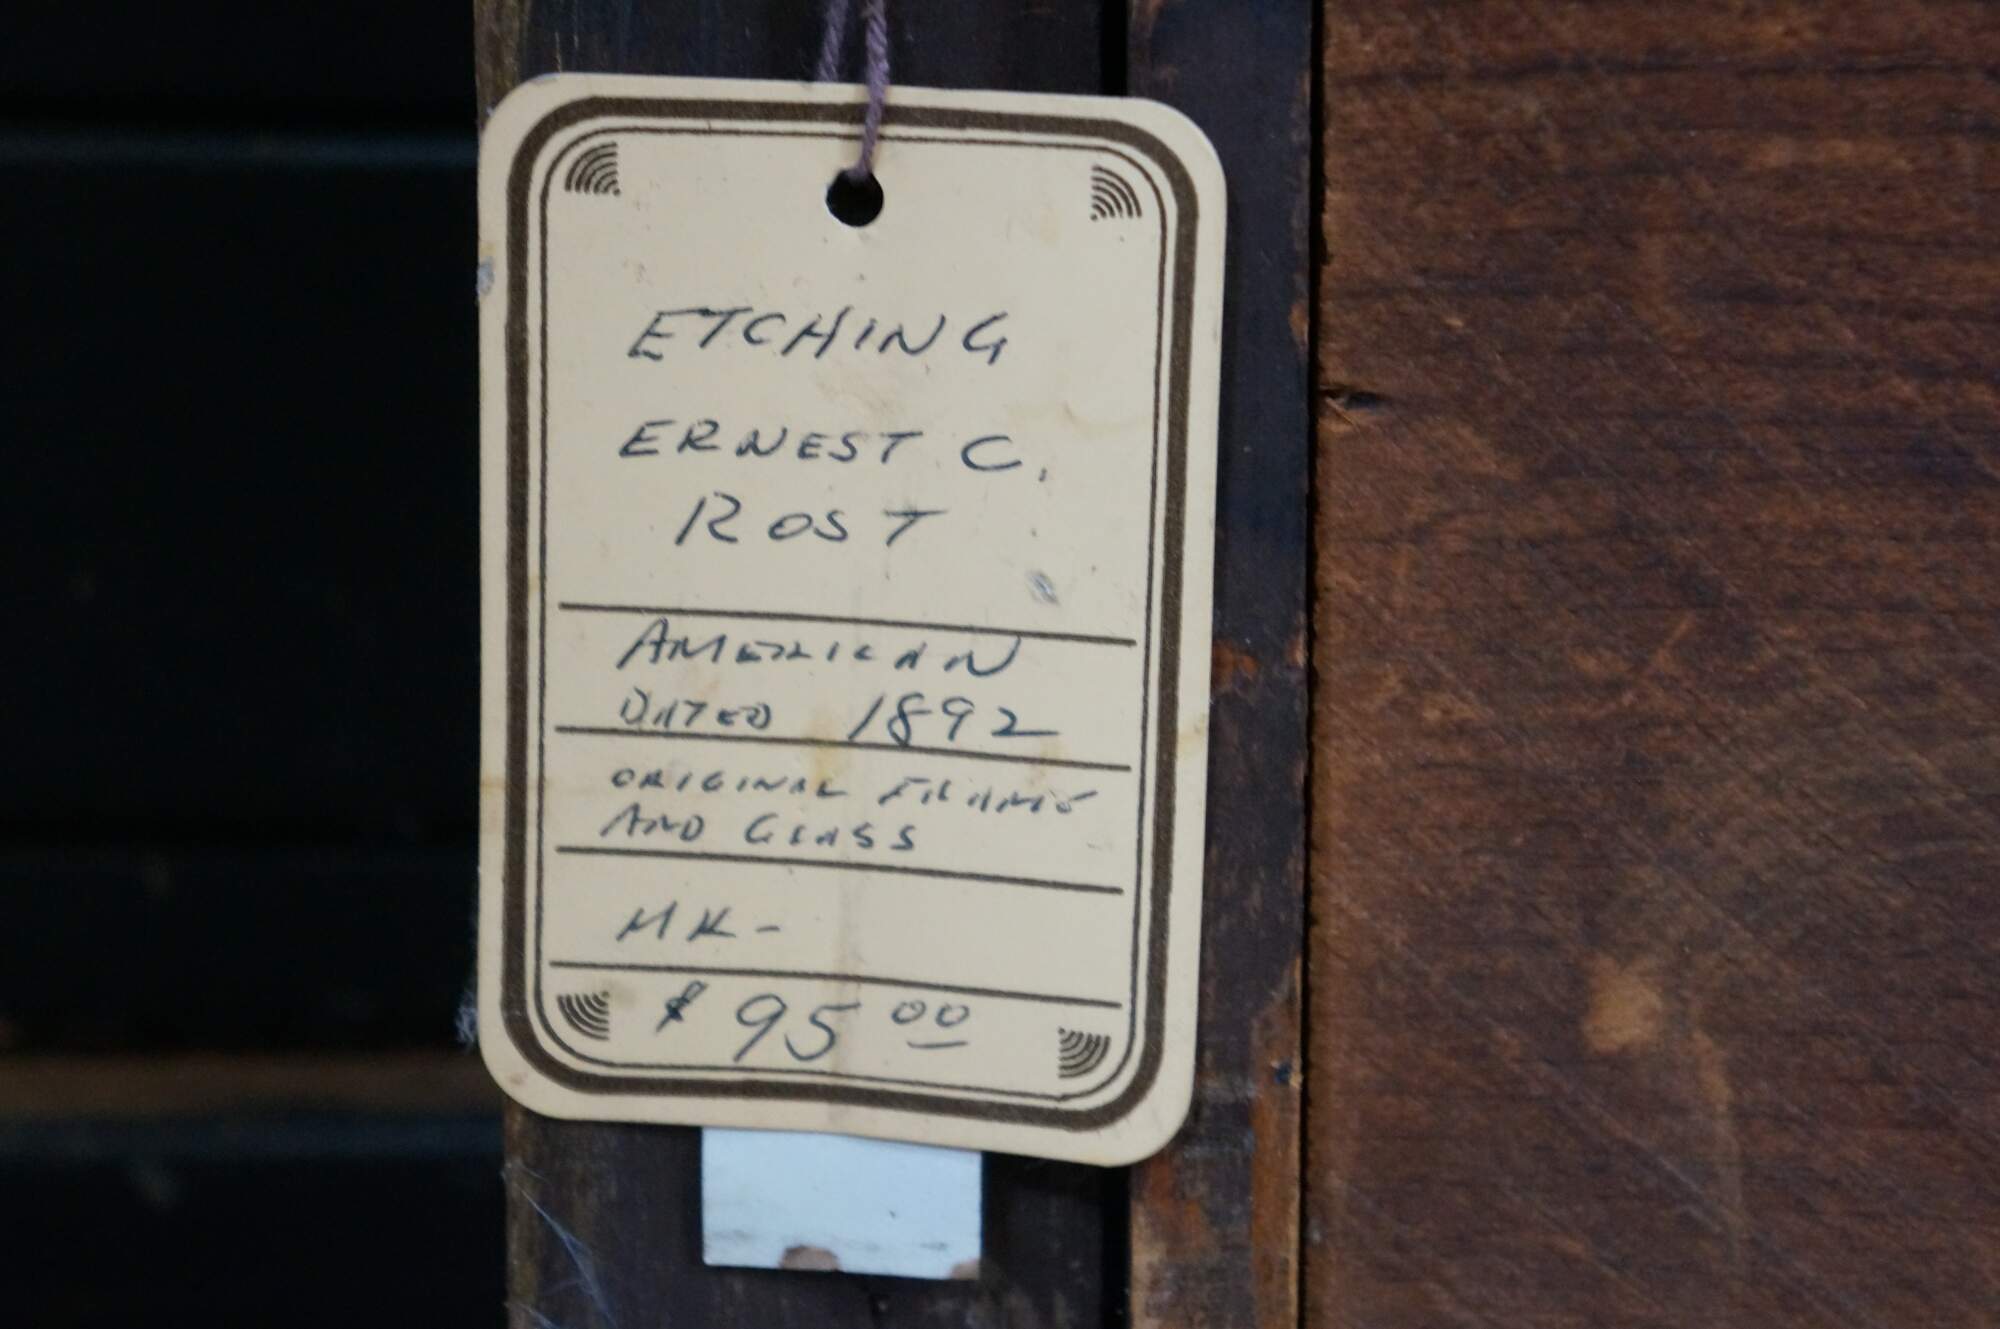 ETCHING
ERNEST C.
ROST
AMERICAN
DATED 1892
ORIGINAL FRAME
AND GLASS
MK-
$95.00